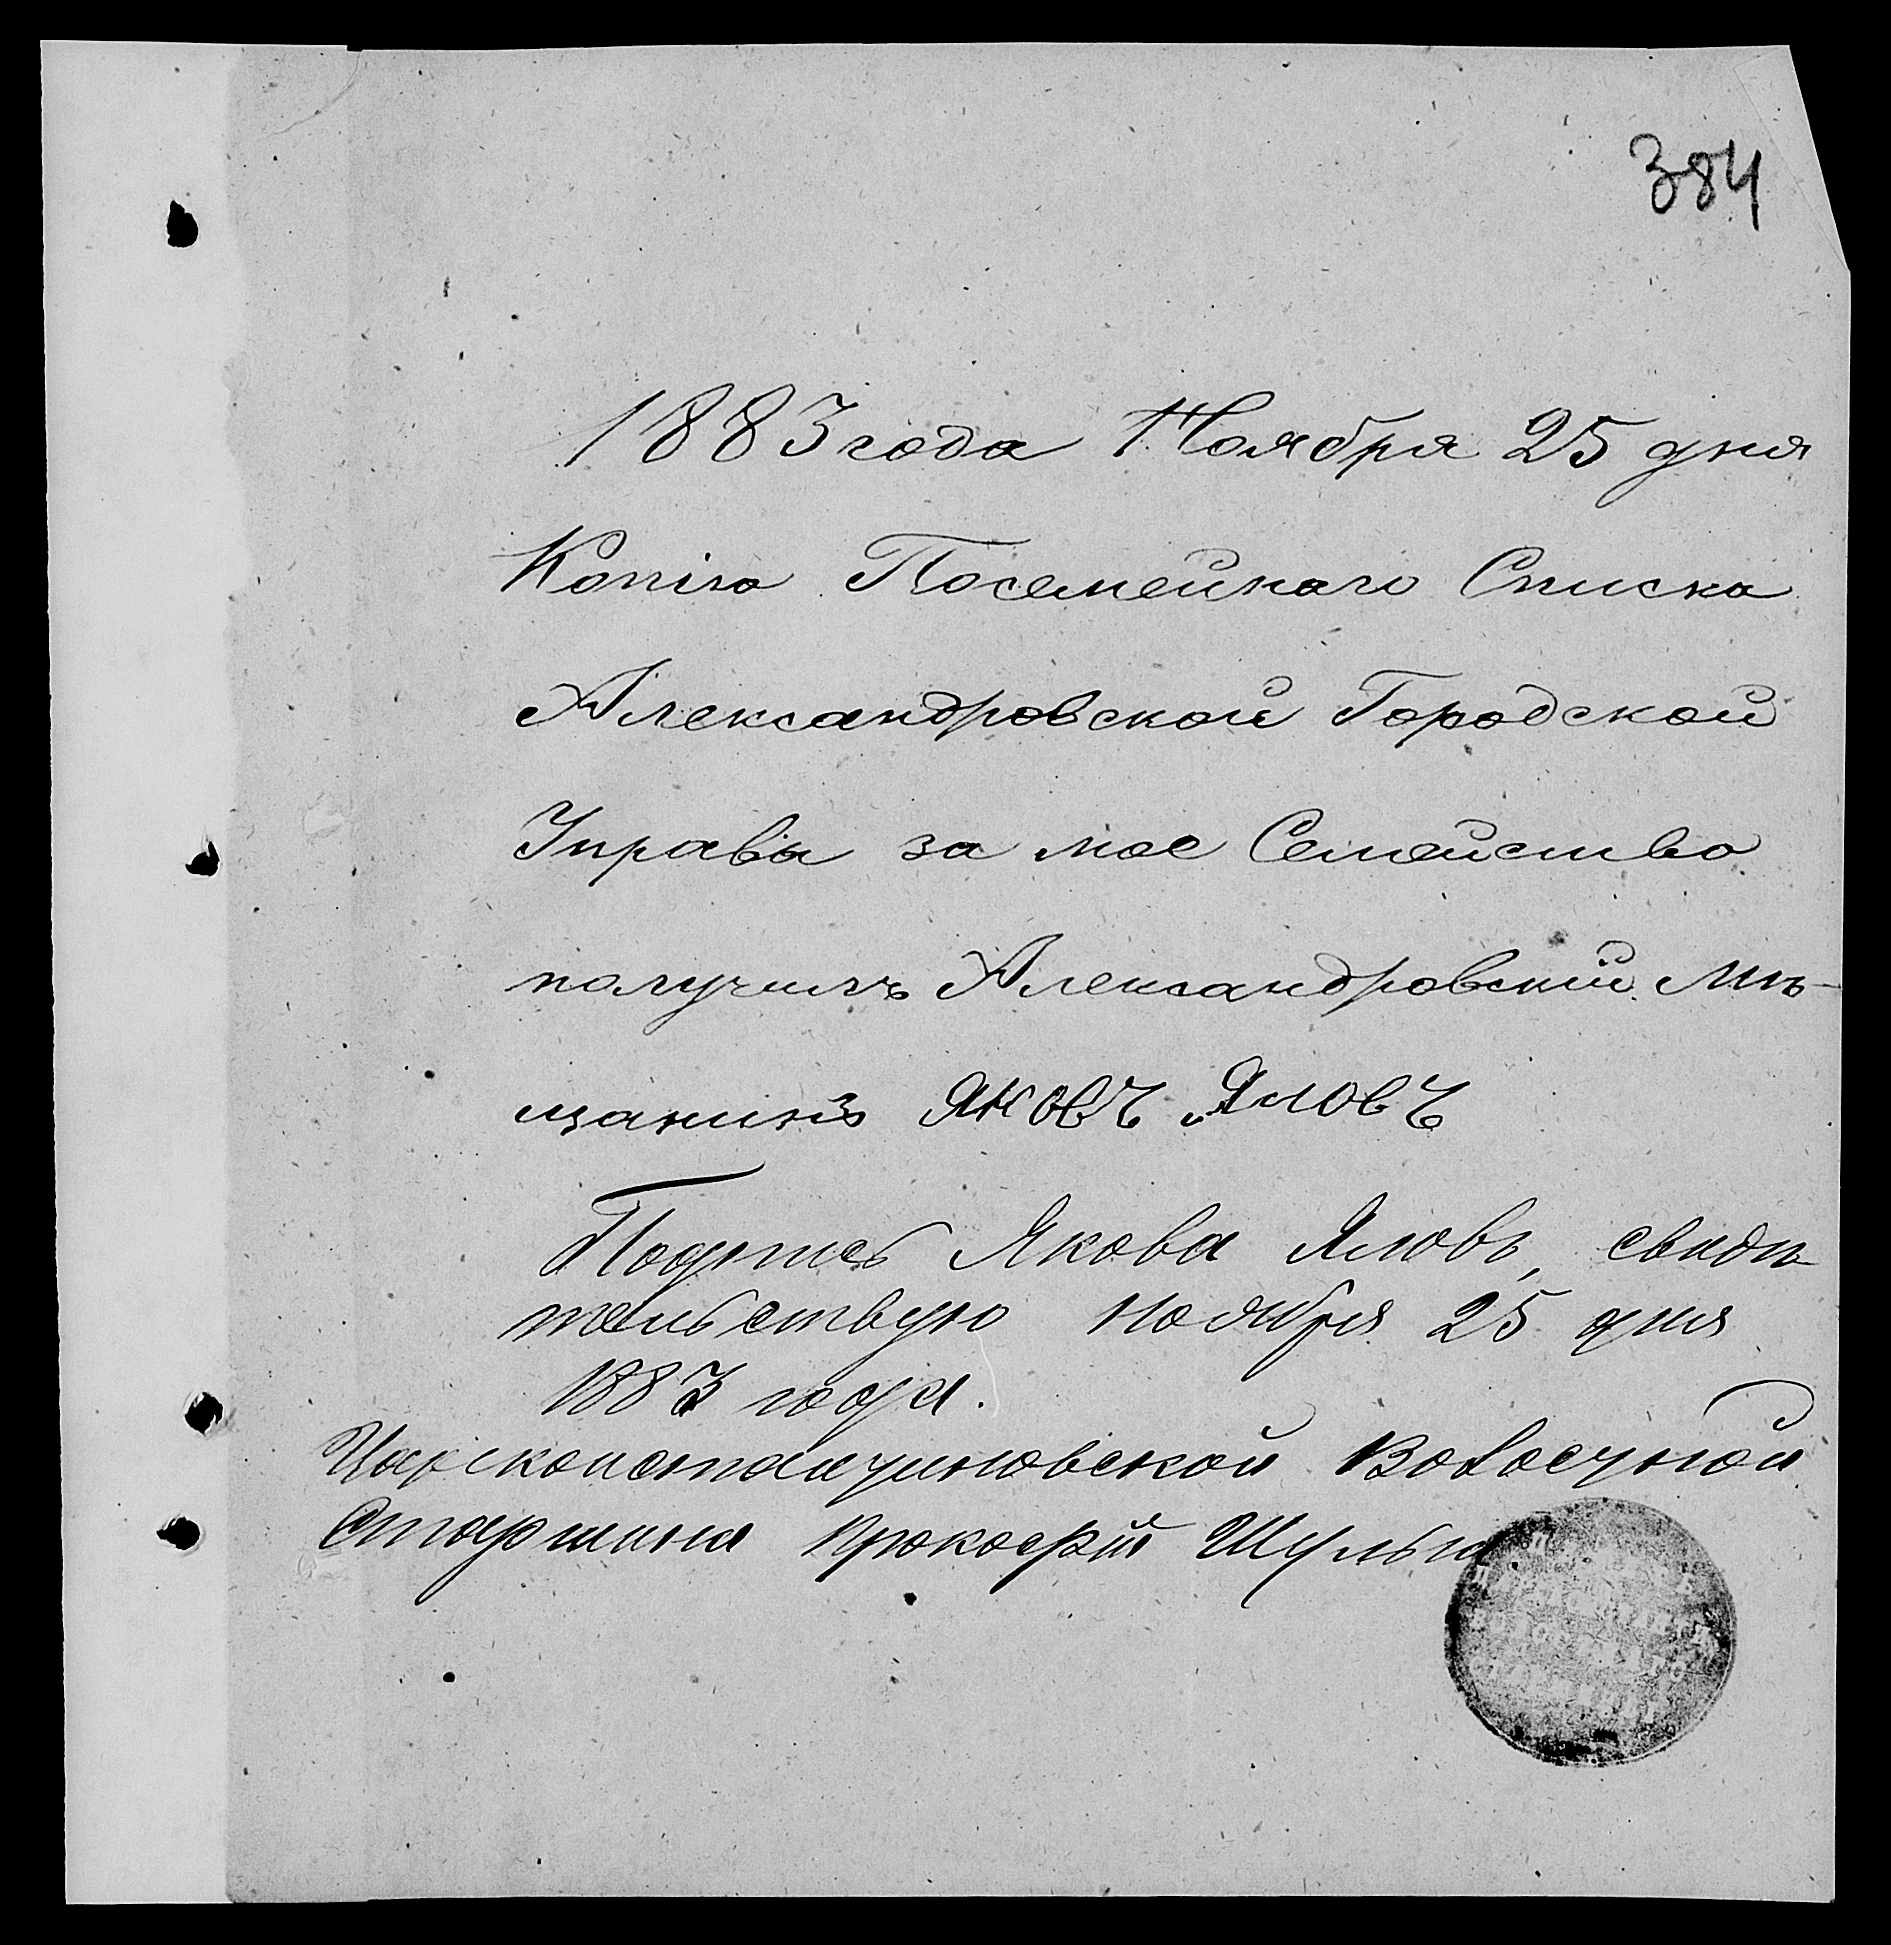 384
1883 года Ноября 25 дня
Копію Посемейнаго Списка
Александровской Городской
Управы за мое Семейство
получилъ Александровскій Мѣ-
щанинъ Яковъ Яловъ
Подпись Якова Яловъ, свидѣ
тельствую Ноября 25 дня
1883 года.
Царсконстантиновской Волостной
Старшина Прокофій Шульга